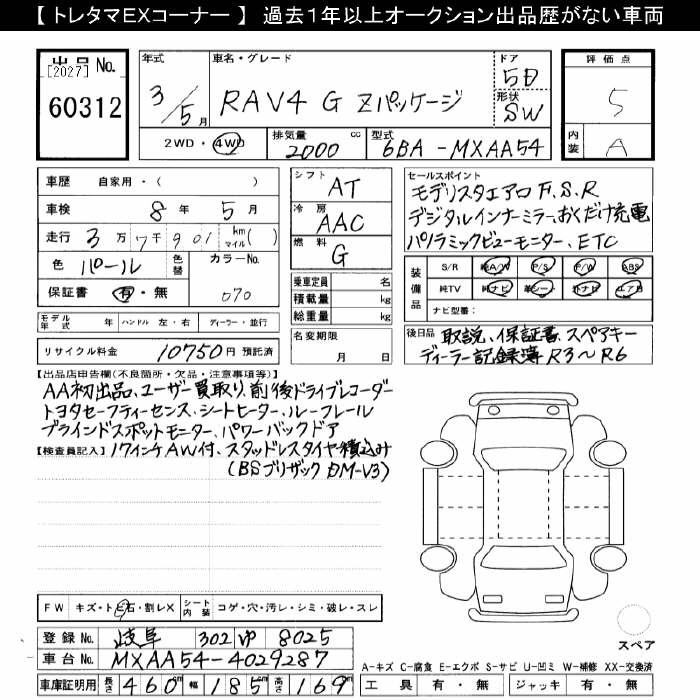 【 トレタマEXコーナー 】 過去1年以上オークション出品歴がない車両
出品 No.
[2027]
60312
年式
3/5月
車名・グレード
RAV4 G Zパッケージ
ドア
5D
形状
SW
2WD・4WD
排気量
2000 cc
型式
6BA-MXAA54
評価点
5
内装
A
車歴 自家用・( )
車検 8年 5月
走行 3万7千901 km マイル( )
色 パール
色替
カラーNo.
070
保証書 有・無
モデル年式 年 ハンドル 左・右 ディーラー・並行
リサイクル料金 10750円 預託済
シフト
AT
冷房
AAC
燃料
G
乗車定員 名
積載量 kg
総重量 kg
名変期限
月 日
セールスポイント
モデリスタエアロ F.S.R
デジタルインナーミラー、おくだけ充電
パノラミックビューモニター、ETC
装備品
S/R 純A/W P/S P/W ABS
純TV 純ナビ 革シート 外ナビ エアB
ナビ型番:
後日品 取説、保証書 スペアキー
ディーラー記録簿 R3〜R6
【出品店申告欄(不良箇所・欠品・注意事項等)】
AA初出品、ユーザー買取り、前後ドライブレコーダー
トヨタセーフティーセンス、シートヒーター、ルーフレール
ブラインドスポットモニター、パワーバックドア
【検査員記入】 17インチAW付、スタッドレスタイヤ積込み
(BSブリザック DM-V3)
FW キズ・トビ石・割レX
シート内装 コゲ・穴・汚レ・シミ・破レ・スレ
登録No. 岐阜 302 ゆ 8025
車台No. MXAA54-4029287
車庫証明用 長さ 460cm 幅 185cm 高さ 169cm
スペア
A-キズ C-腐食 E-エクボ S-サビ U-凹ミ W-補修 XX-交換済
工具 有・無 ジャッキ 有・無